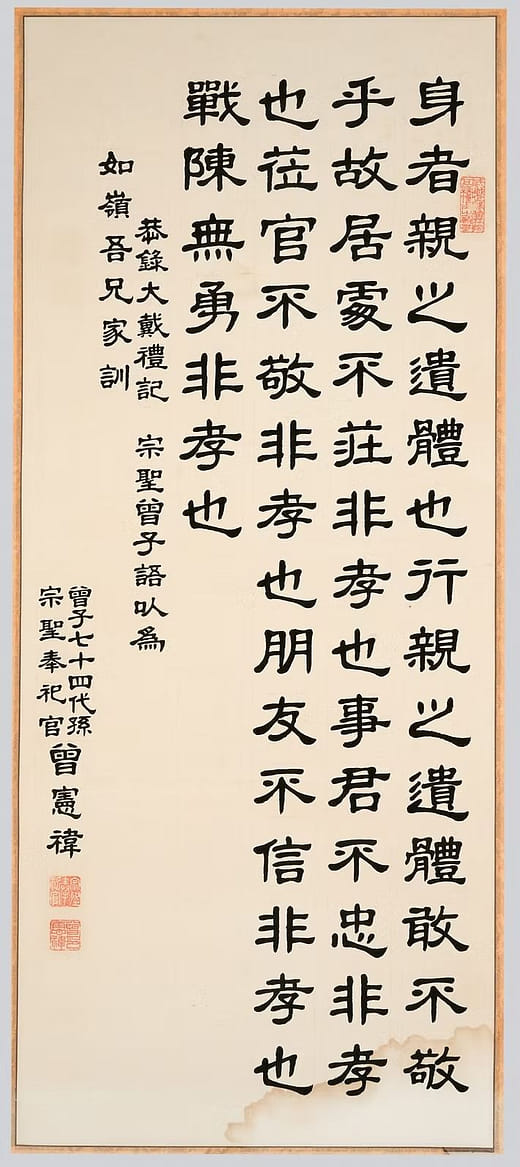 身者親之遺體也行親之遺體敢不敬
乎故居處不莊非孝也事君不忠非孝
也莅官不敬非孝也朋友不信非孝也
戰陳無勇非孝也
恭錄大戴禮記　宗聖曾子語以為
如嶺吾兄家訓
曾子七十四代孫
宗聖奉祀官曾憲禕